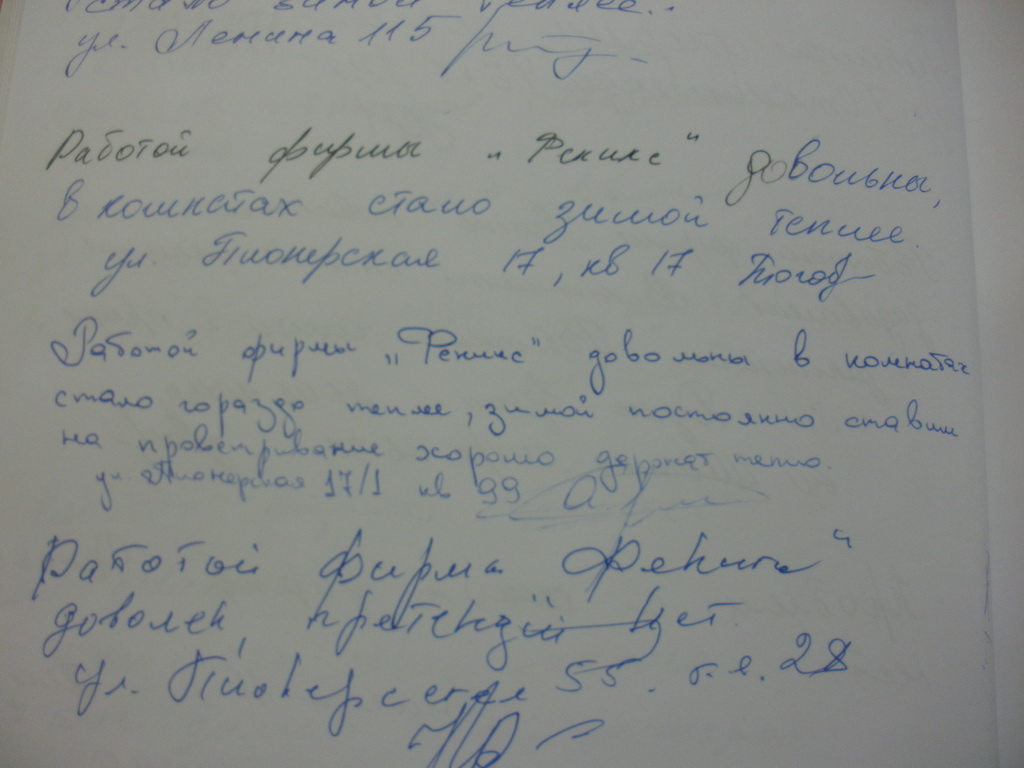 стало зимой теплее..
ул. Ленина 115
Работой фирмы „Феникс" довольны,
в комнатах стало зимой теплее.
ул. Пионерская 17, кв 17
Работой фирмы „Феникс" довольны в комнатах
стало гораздо теплее, зимой постоянно ставим
на проветривание хорошо держат тепло.
ул. Пионерская 17/1 кв 99
Работой фирма Феникс"
доволен, претензий нет.
ул. Пионерская 55. 28